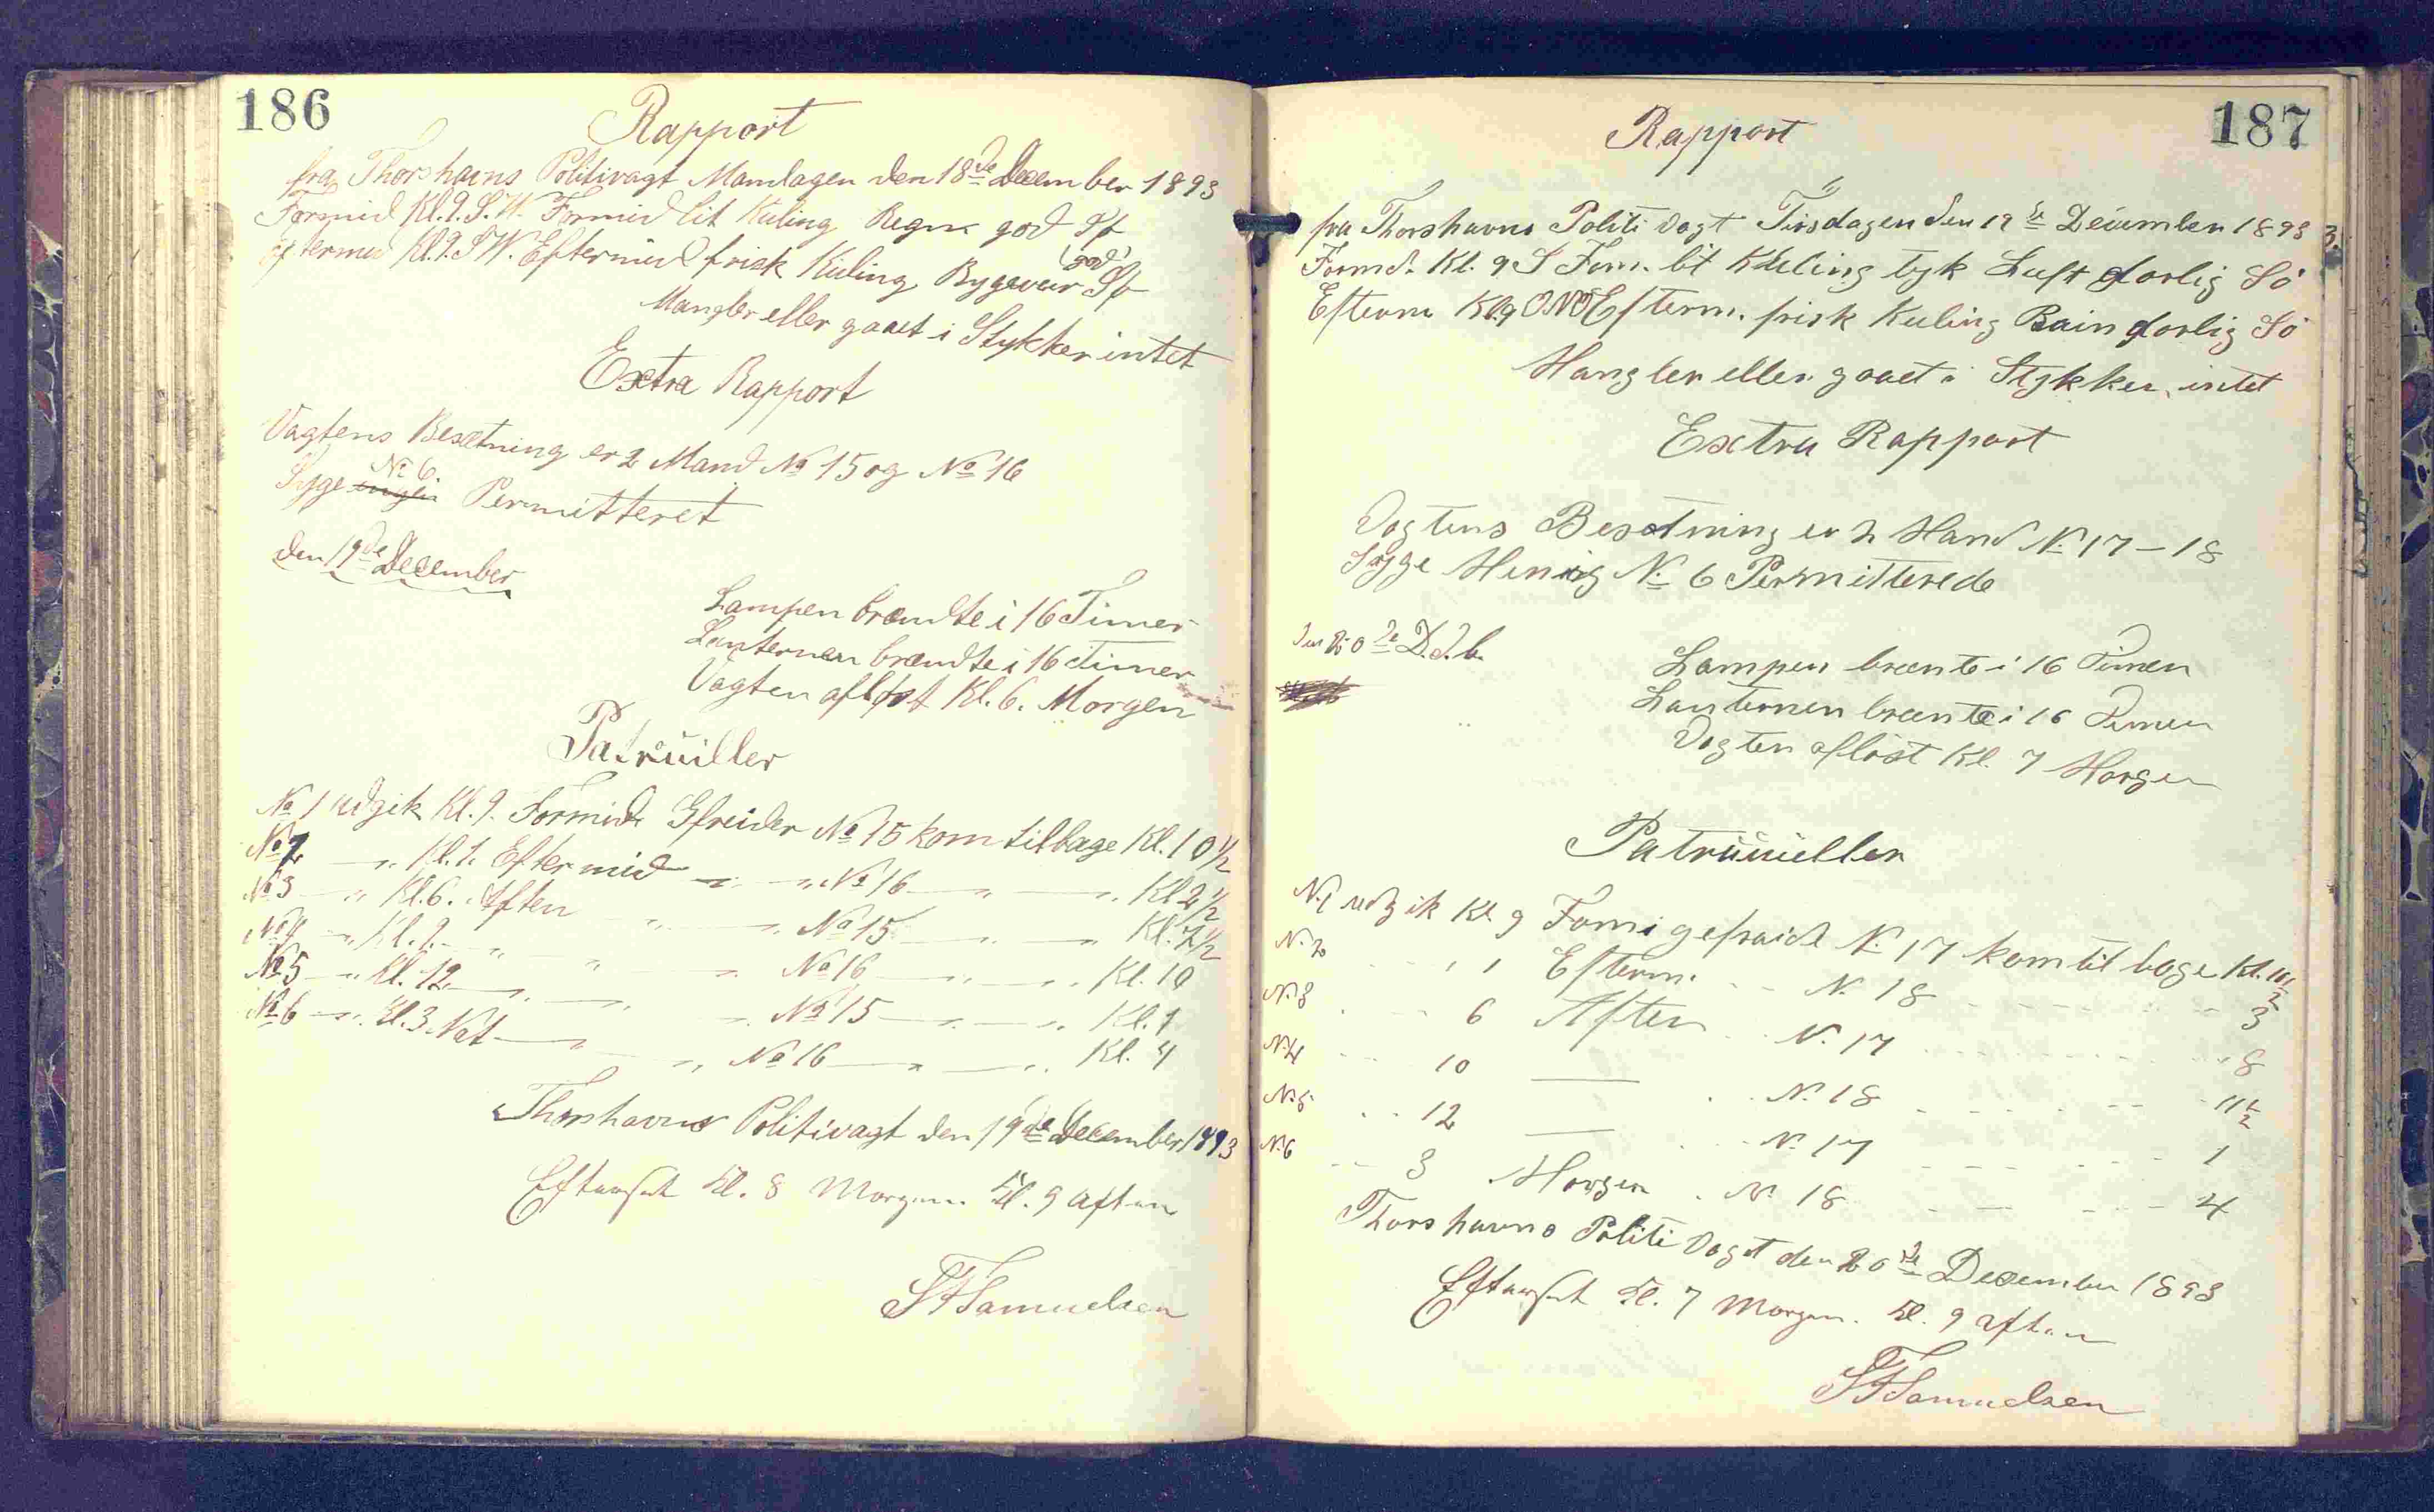 186
Rapport
fra Thorshavns Politivagt Mandagen den 18de December 1893
Formid Kl. 9. S.W. Formid lit Kuling Regn god Sø
Eftermid Kl. 9. SW. Eftermid frisk Kuling Bygeveir god Sø
Mangler eller gaaet i Stykker intet
Extra Rapport
Vagtens Besætning er 2 Mand No 15 og No 16
Syge ingen No 6. Permitteret
den 19de December
Lampen brændte i 16 Timer
Lanternen brændte i 16 Timer
Vagten afløst Kl. 6. Morgen
Patruiller
No 1 udgik Kl. 9. Formid Gfreider No 15 kom tilbage Kl. 10 1/2
No 2 — " Kl. 1. Eftermid — " — " No 16 — " — " Kl 2 1/2
No 3 — " Kl. 6. Aften " — " No 15 — " — " Kl. 7 1/2
No 4 — " Kl. 9. — " " — " No 16 — " — " Kl. 10
No 5 — " Kl. 12. — " — " — " No 15 — " — " Kl. 1
No 6 — " Kl. 3 Nat — " — " No 16 — " — " Kl. 4
Thorshavns Politivagt den 19de December 1893
Efterset Kl. 8 Morgen. Kl. 9 aften
SFSamuelsen
187
Rapport
fra Thorshavns Politi Vagt Tirsdagen den 19de December 1893 3.
Formd. Kl. 9 S Form. lit Kuling tyk Luft dorlig Sö
Efterm Kl 9 ONO Efterm. frisk Kuling Rain dorlig Sö
Mangler eller gaaet i Stykker intet
Extra Rapport
Vagtens Besetning er 2 Mand N. 17 – 18
Syge Menig N. 6 Permitterede
den 20de D.d.b.
Lampen brænte i 16 Timer
Lanternen brænte i 16 Timer
Vagten aflöst Kl. 7 Morgen
Patruiller
N. 1 udgik Kl. 9 Formi gefraide N. 17 kom til bage Kl. 10 1/2
N. 2 1 Efterm. N. 18 3
N. 3 6 Aften N. 17 8
N. 4 10 — N. 18 11 1/2
N. 5 12 — N. 17 1
N. 6 3 Morgen N. 18 4
Thorshavns Politi Vagt den 20de December 1893
Efterset Kl. 7 Morgen. Kl. 9 aften
SFSamuelsen